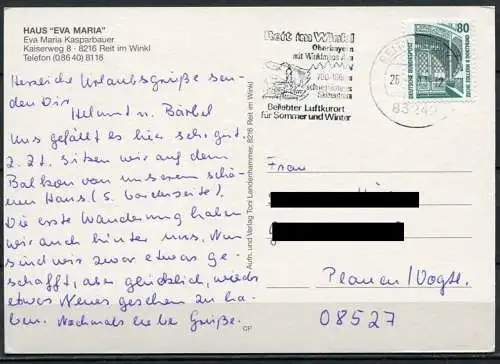 HAUS "EVA MARIA"
Eva Maria Kasparbauer
Kaiserweg 8 · 8216 Reit im Winkl
Telefon (08640) 8118
Herzliche Urlaubsgrüße sen-
den Dir
Helmut u. Bärbel
Uns gefällt es hier sehr gut.
Z. Zt. sitzen wir auf dem
Balkon von unserem schö-
nen Haus (s. Vorderseite).
Die erste Wanderung haben
wir auch hinter uns. Nun
sind wir zwar etwas ge-
schafft, aber glücklich, wieder
etwas Neues gesehen zu ha-
ben. Nochmals liebe Grüße.
Aufn. und Verlag Toni Landenhammer, 8216 Reit im Winkl
CP
Reit im Winkl
Oberbayern
mit Winklmoos-Alm
Beliebter Luftkurort
für Sommer und Winter
80
DEUTSCHE BUNDESPOST
ZECHE ZOLLERN II DORTMUND
Frau
Plauen/Vogtl.
08527